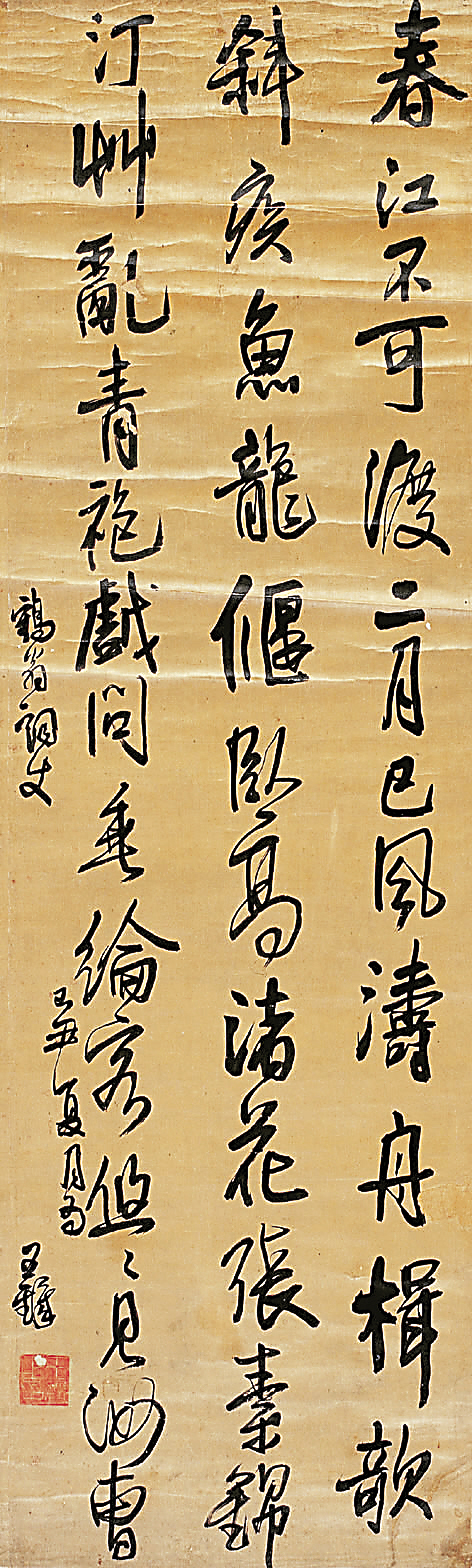 春江不可渡二月已風濤舟楫欹
斜疾魚龍偃臥高渚花張素錦
汀艸亂青袍戲問垂綸客悠〻見汝曹
丑夏月為
鶴翁詞丈
王鐸